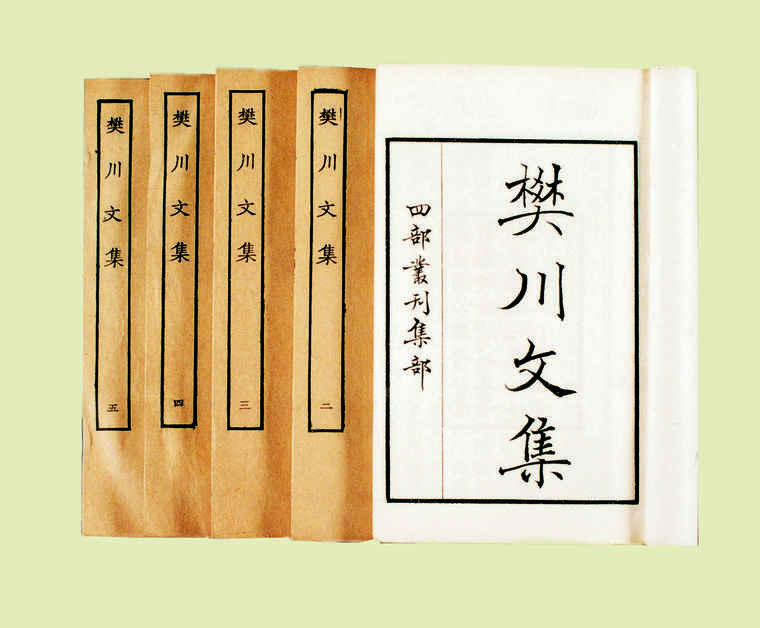 樊川文集
四部叢刊集部
樊川文集
二
樊川文集
三
樊川文集
四
樊川文集
五